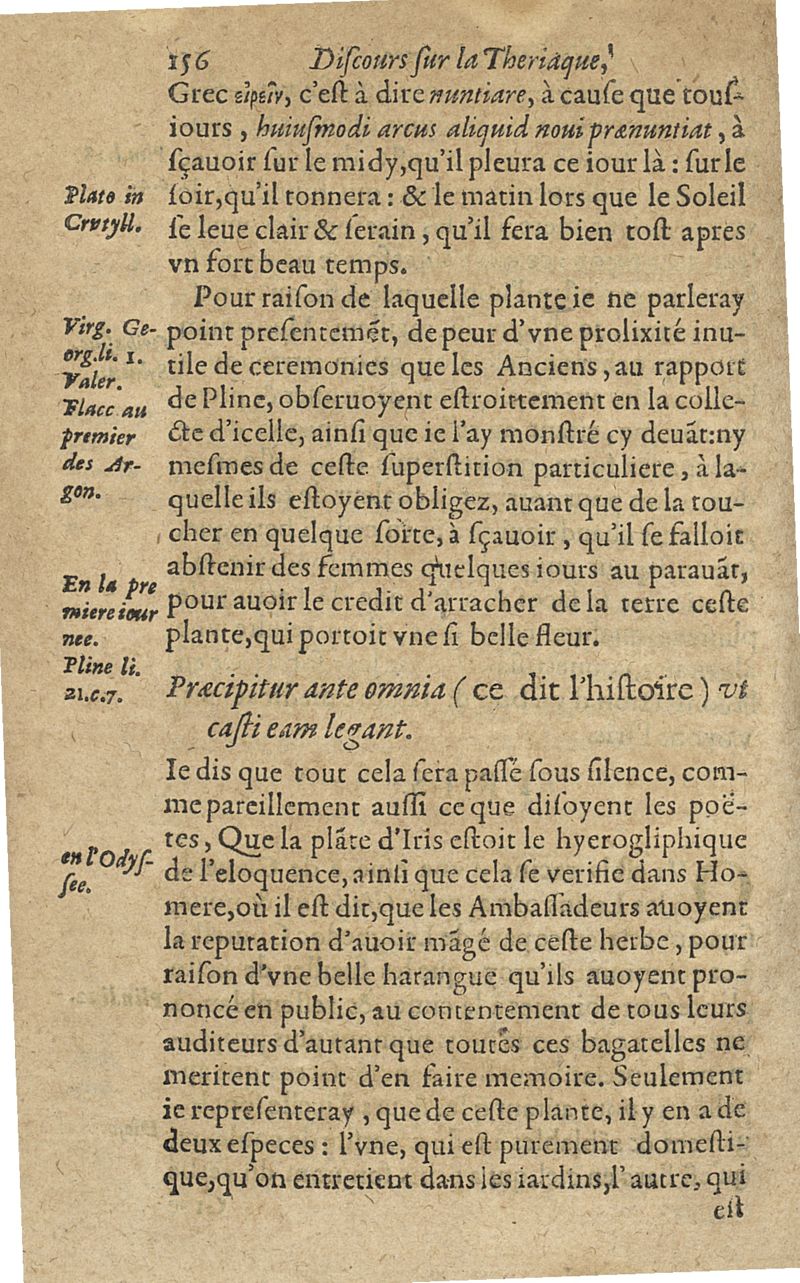 156 Diſcours ſur la Theriaque,
Grec εἰρεῖν, c'eſt à dire nuntiare, à cauſe que touſ-
iours, huiuſmodi arcus aliquid noui prænuntiat, à
ſçauoir ſur le midy, qu'il pleura ce iour là : ſur le
ſoir, qu'il tonnera : & le matin lors que le Soleil
ſe leue clair & ſerain, qu'il fera bien toſt apres
vn fort beau temps.
Plato in
Cratyll.
Pour raiſon de laquelle plante ie ne parleray
point preſentemẽt, de peur d'vne prolixité inu-
tile de ceremonies que les Anciens, au rapport
de Pline, obſeruoyent eſtroittement en la colle-
cte d'icelle, ainſi que ie l'ay monſtré cy deuãt: ny
meſmes de ceſte ſuperſtition particuliere, à la-
quelle ils eſtoyent obligez, auant que de la tou-
cher en quelque ſorte, à ſçauoir, qu'il ſe falloit
abſtenir des femmes quelques iours au parauãt,
pour auoir le credit d'arracher de la terre ceſte
plante, qui portoit vne ſi belle fleur.
Virg. Ge-
org. li. 1.
Valer.
Flacc au
premier
des Ar-
gon.
En la pre
miere iour
nee.
Pline li.
21.c.7.
Præcipitur ante omnia ( ce dit l'hiſtoire ) vt
caſti eam legant.
Ie dis que tout cela ſera paſſé ſous ſilence, com-
me pareillement auſſi ce que diſoyent les poë-
tes, Que la plãte d'Iris eſtoit le hyerogliphique
de l'eloquence, ainſi que cela ſe verifie dans Ho-
mere, où il eſt dit, que les Ambaſſadeurs auoyent
la reputation d'auoir mãgé de ceſte herbe, pour
raiſon d'vne belle harangue qu'ils auoyent pro-
noncé en public, au contentement de tous leurs
auditeurs d'autant que toutes ces bagatelles ne
meritent point d'en faire memoire. Seulement
ie repreſenteray, que de ceſte plante, il y en a de
deux eſpeces : l'vne, qui eſt purement domeſti-
que, qu'on entretient dans les iardins, l'autre, qui
en l'Odyſ-
ſee.
eſt